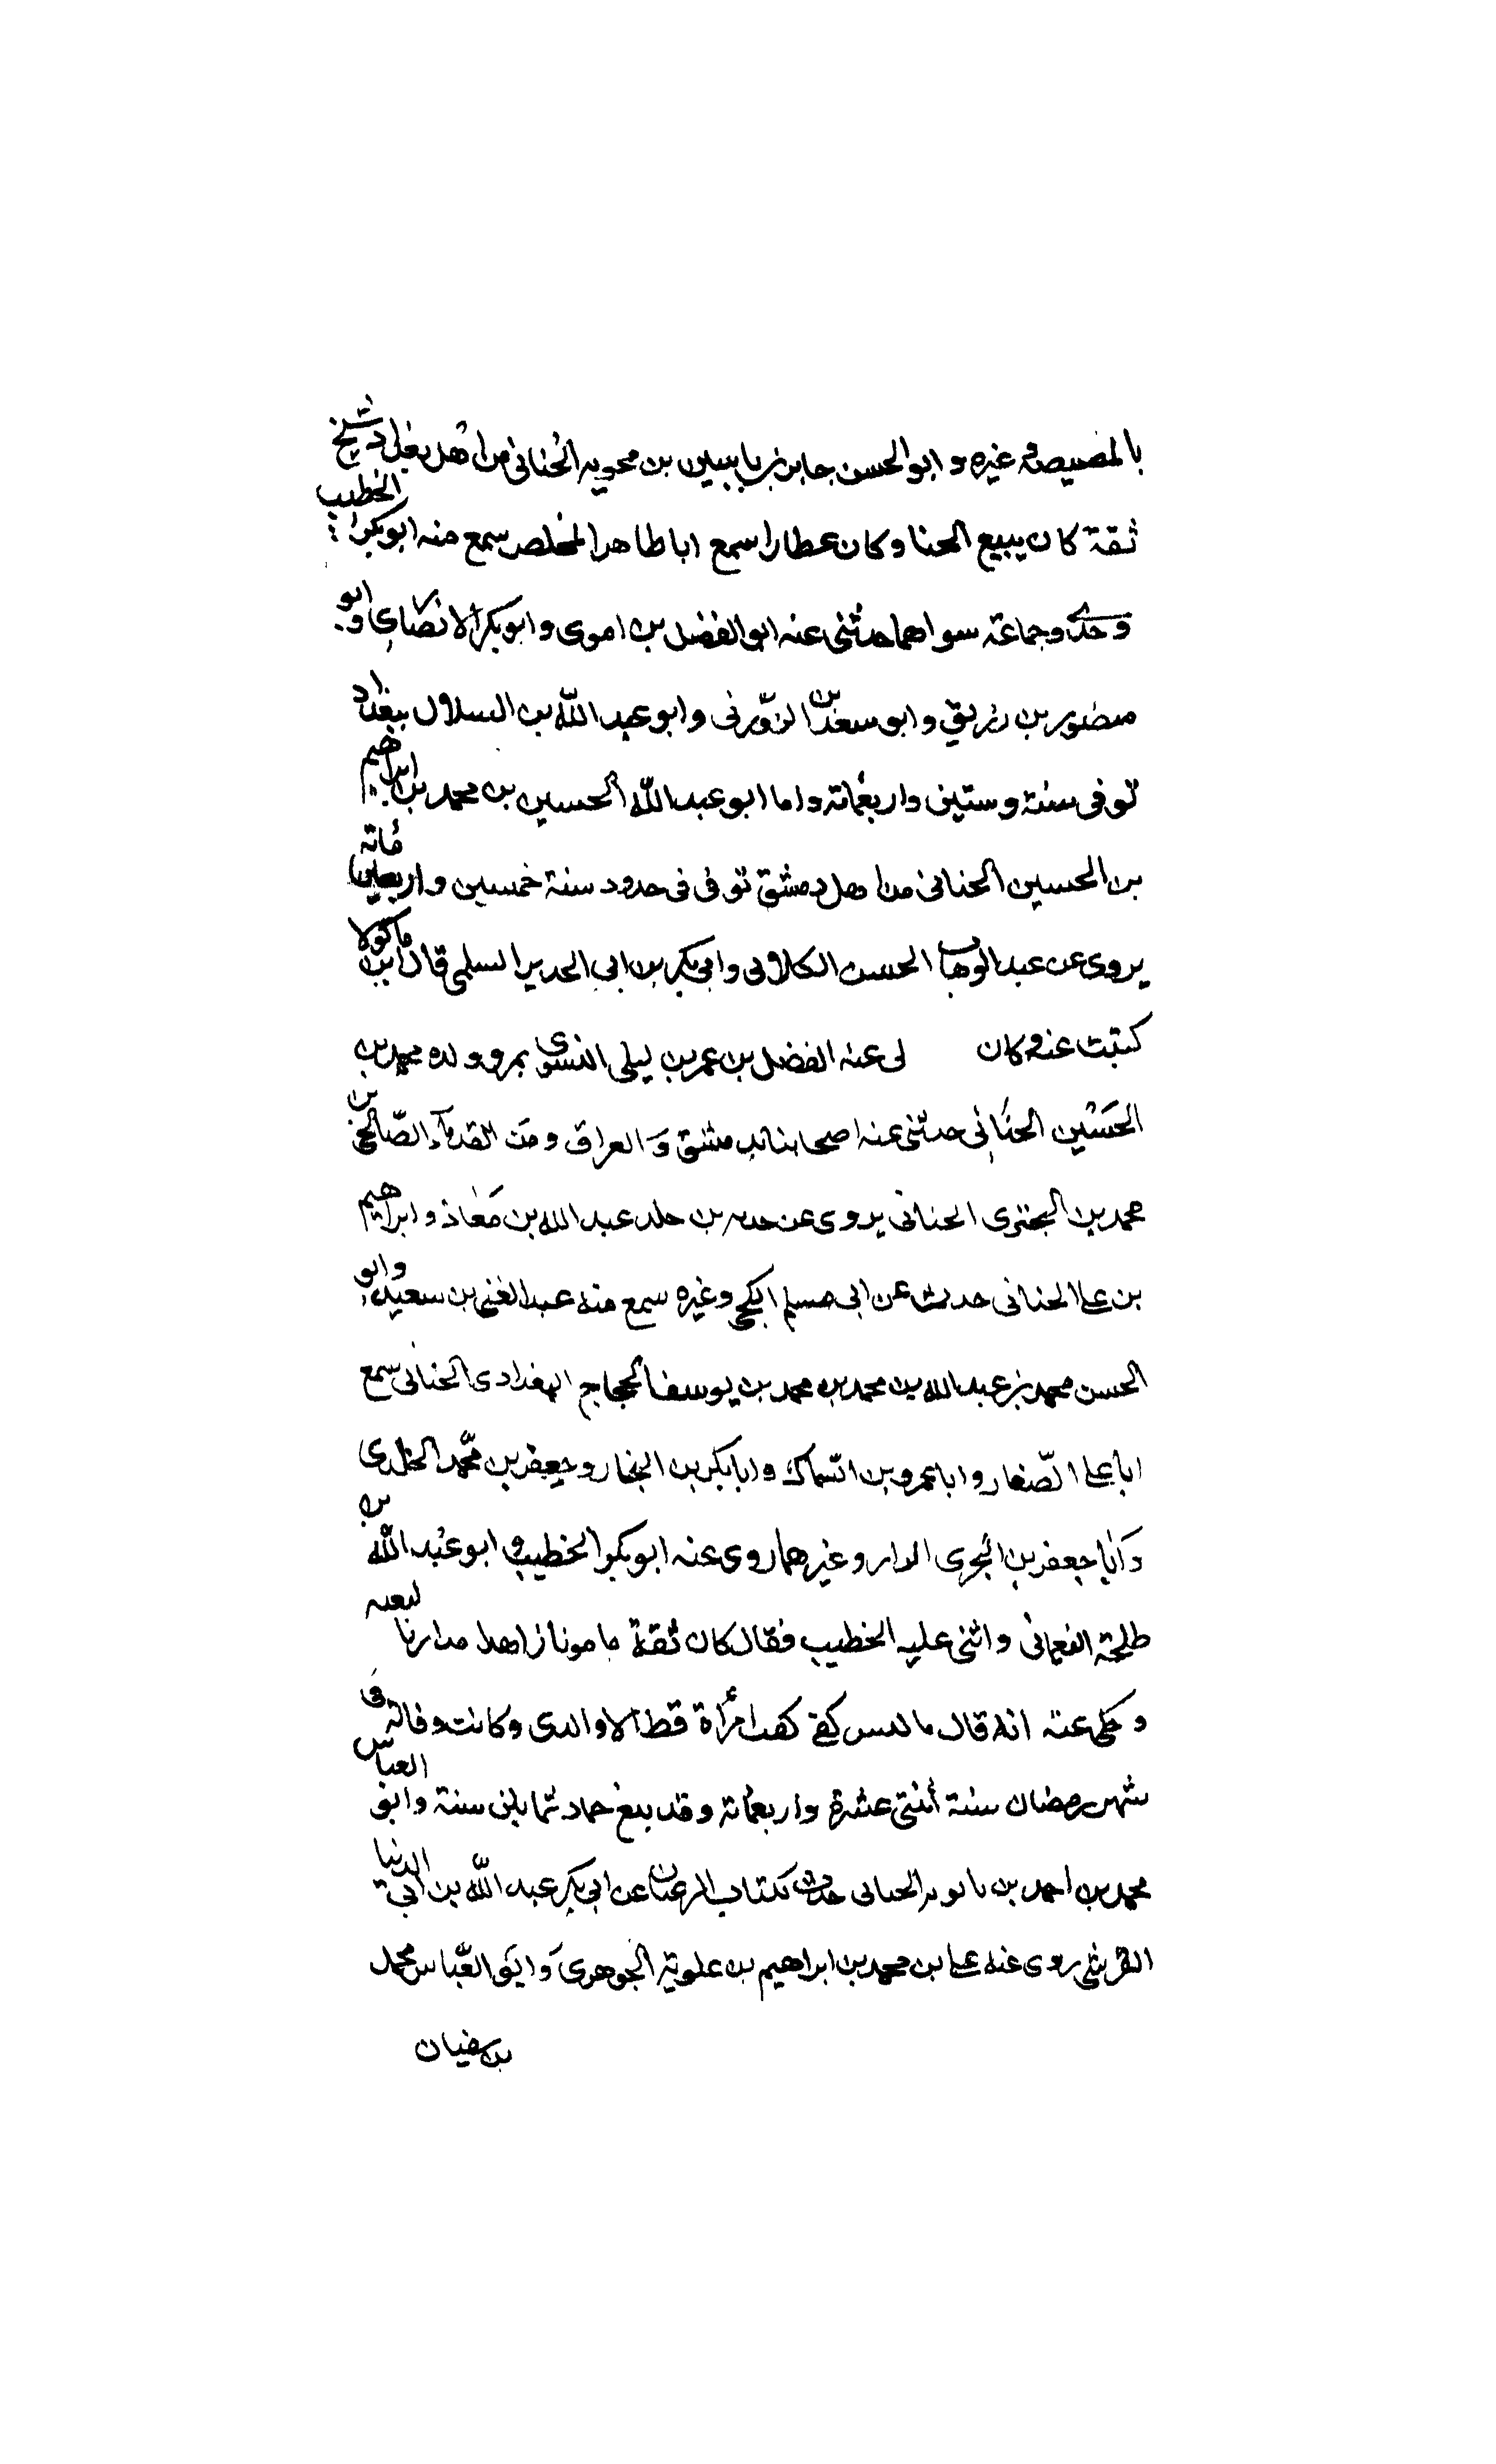 بالمصيصة وغيره وابو الحسن جابر بن ياسين بن محويه الحنائى من اهل بغداد شيخ
ثقة كان يبيع الحنا وكان عطارا سمع ابا طاهر المخلص سمع منه ابو بكر الخطيب
وجماعة سواهما حدثنى عنه ابو الفضل بن اموى وابو بكر الانصارى وابو
منصور بن زريق وابو سعد بن الزوزنى وابو عبد الله بن السلال ببغداد
توفى سنة وستين واربعمائة واما ابو عبد الله الحسين بن محمد بن ابراهيم
بن الحسين الحنائى من اهل دمشق توفى فى حدود سنة خمسين واربعمائة
يروى عن عبد الوهاب الحسن الكلابى وابى بكر بن ابى الحديد السلمى قال ابن ماكولا
كتبت عنه وكان لى عنه الفضل بن عمر بن ليلى النسوى بمرو وولده محمد بن
الحسين الحنائى حدثنى عنه اصحابنا بدمشق والعراق ومن القدماء الصالحى بن
محمد بن البخترى الحنائى يروى عن عبد الله بن معاذ وابراهيم
بن على الحنائى حدث عن ابى مسلم الكجى وغيره سمع منه عبد الغنى بن سعيد وابو
الحسن محمد بن عبد الله بن محمد بن محمد بن يوسف الحجاج البغدادى الحنائى سمع
ابا على الصفار وابا عمرو بن السماك وابا بكر بن النجار وجعفر بن محمد الخلدى
وابا جعفر بن البحرى الدار وغيرهما روى عنه ابو بكر الخطيب وابو عبد الله بن
طلحة النعمانى واثنى عليه الخطيب فقال كان ثقة مامونا زاهدا
وحكى عنه انه قال ما لمس كفى كف امرأة قط الا والدى وكانت وفاته فى
شهر رمضان سنة أثنتى عشرة واربعمائة وقد بلغ ثمانين سنة وابو العباس
محمد بن احمد بن الحنائى حدث بكتاب عن ابى بكر عبد الله بن ابى الدنيا
القرشى روى عنه على بن محمد بن ابراهيم بن علوية الجوهرى وابو العباس محمد
بن سفيان